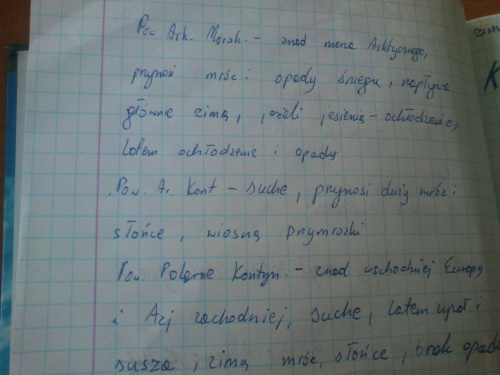 Pow Ark. Morsk. - znad morza Arktycznego,
przynosi mróz i opady śniegu, napływa
głównie zimą, jeżeli jesienią - ochłodzenie,
latem ochłodzenie i opady
Pow. Ar. Kont - suche, przynosi duży mróz i
słońce, wiosną przymrozki
Pow Polarne Kontyn. - znad wschodniej Europy
i Azj zachodniej, suche, latem upał i
susza, zimą mróz, słońce, brak opadó
zima
K